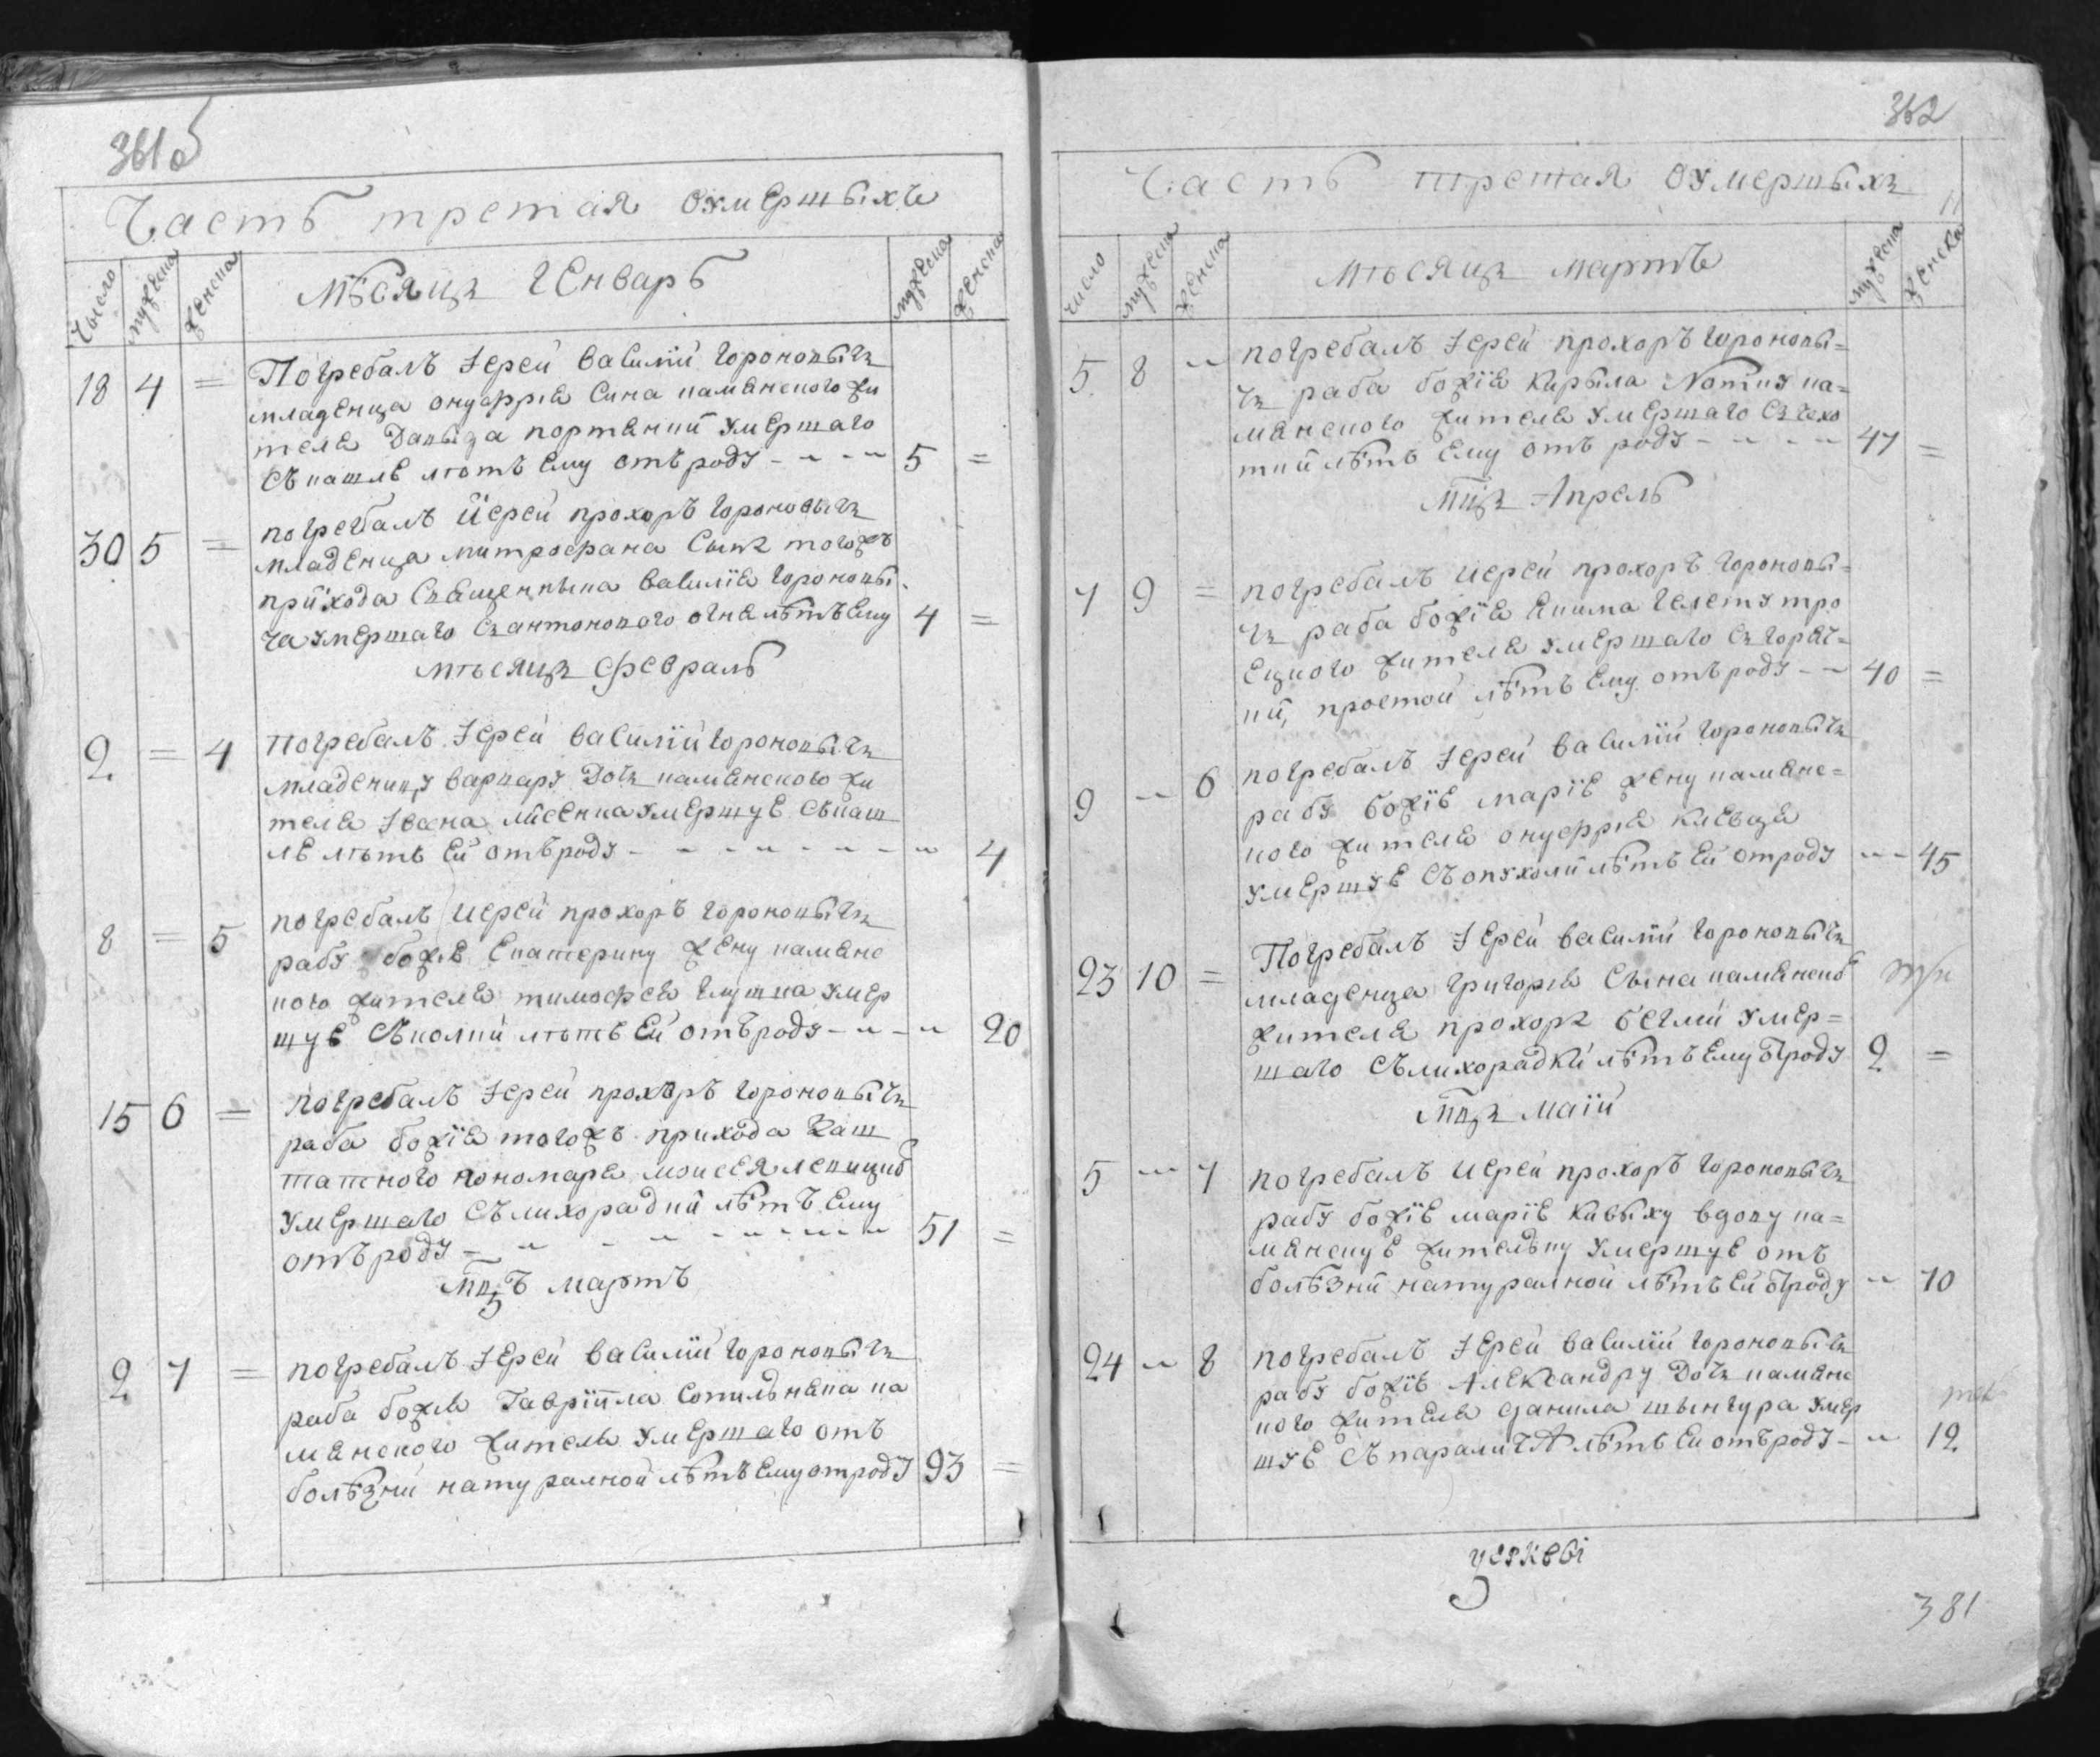 361 об
Часть третая о умершыхъ
Число мужеска женска мѣсяцъ генварь мужеска женска
18 4 = Погребалъ Іерей василій Гороновычъ
младенца онуфрия Сина каменского жи
теля Давыда портянки умершаго
съ кашлѣ лѣтъ ему отъ роду - - - - 5 =
30 5 = погребалъ Иерей прохоръ Гороновычъ
младенца митрофана Сына тогожъ
прихода Священныка василія Гороновы-
ча умершаго съ антонового огня лѣтъ ему 4 =
мѣсяцъ февраль
2 = 4 Погребалъ Іерей василій Гороновычъ
младеницу варвару Дочъ каменского жи
теля Івана умершуе съ каш
ле лѣтъ ей отъ роду - - - - - - - - 4
8 = 5 погребалъ Иерей прохоръ Гороновычъ
рабу божие Екатерину жену каменс
кого жителя тимофея умер
шуе съ колки лѣтъ ей отъ роду - - - - 20
15 6 = погребалъ Іерей прохоръ Гороновычъ
раба божїя тогожъ прихода Заш
татного пономаря моисея
умершаго съ лихорадки лѣтъ ему
отъ роду - - - - - - - - - 51 =
мцъ мартъ
2 7 = погребалъ Іерей василій Гороновычъ
раба божия Гаврїила ка
менского жителя умершаго отъ
болѣзни натуралной лѣтъ ему отроду 93 =
362
Часть третая о умершыхъ
11
число мужеска женска мѣсяцъ мартъ мужеска женска
5 8 - погребалъ Іерей прохоръ Гороновы=
чъ раба божїя Кирыла ка=
менского жителя умершаго съ чахо
тки лѣтъ ему отъ роду - - - - 47 =
мцъ Апрель
7 9 = погребалъ Иерей прохоръ Гороновы=
чъ раба божїя Якима
жителя умершаго съ горяч=
ки, простой лѣтъ ему отъ роду - - 40 =
9 - 6 погребалъ Іерей василій Гороновычъ
рабу божїе марїе жену каменс=
кого жителя онуфрия
умершуе съ опухоли лѣтъ ей отроду - - 45
23 10 = Погребалъ Іерей василій Гороновычъ
младенца григория Сына каменског
жителя прохора умер=
шаго съ лихорадки лѣтъ ему отроду 2 =
мцъ маїй
5 - 7 погребалъ Иерей прохоръ Гороновычъ
рабу божїе марїе вдову ка=
менскуе умершуе отъ
болѣзни натуралной лѣтъ ей отроду - 70
24 - 8 погребалъ Іерей василій Гороновычъ
рабу божїе Александру Дочъ каменс
кого жителя данила умер
шуе съ паралича лѣтъ ей отъ роду - - 12
381